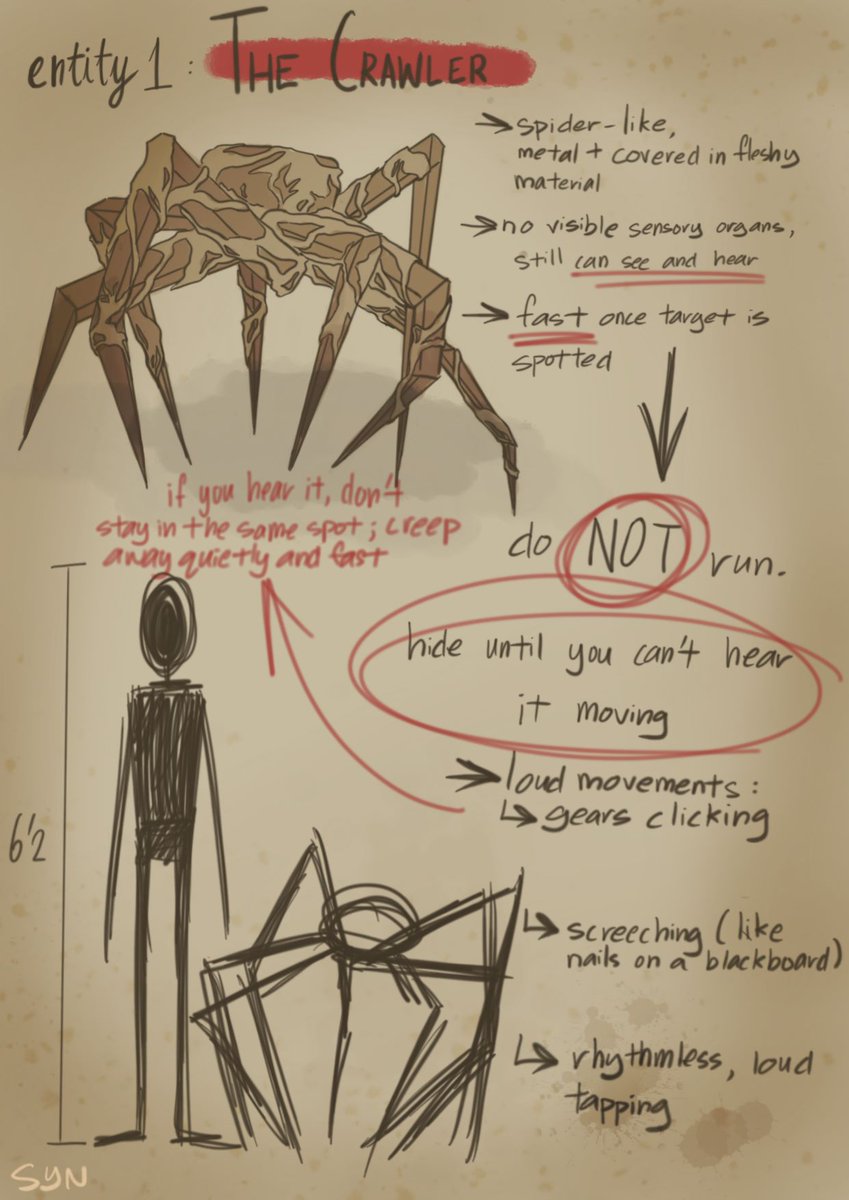 entity 1 : THE CRAWLER
→ spider-like,
metal + covered in fleshy
material
→ no visible sensory organs,
still can see and hear
→ fast once target is
spotted
do NOT run.
hide until you can't hear
it moving
→ loud movements :
↳ gears clicking
↳ screeching (like
nails on a blackboard)
↳ rhythmless, loud
tapping
if you hear it, don't
stay in the same spot ; creep
away quietly and fast
6'2
SYN